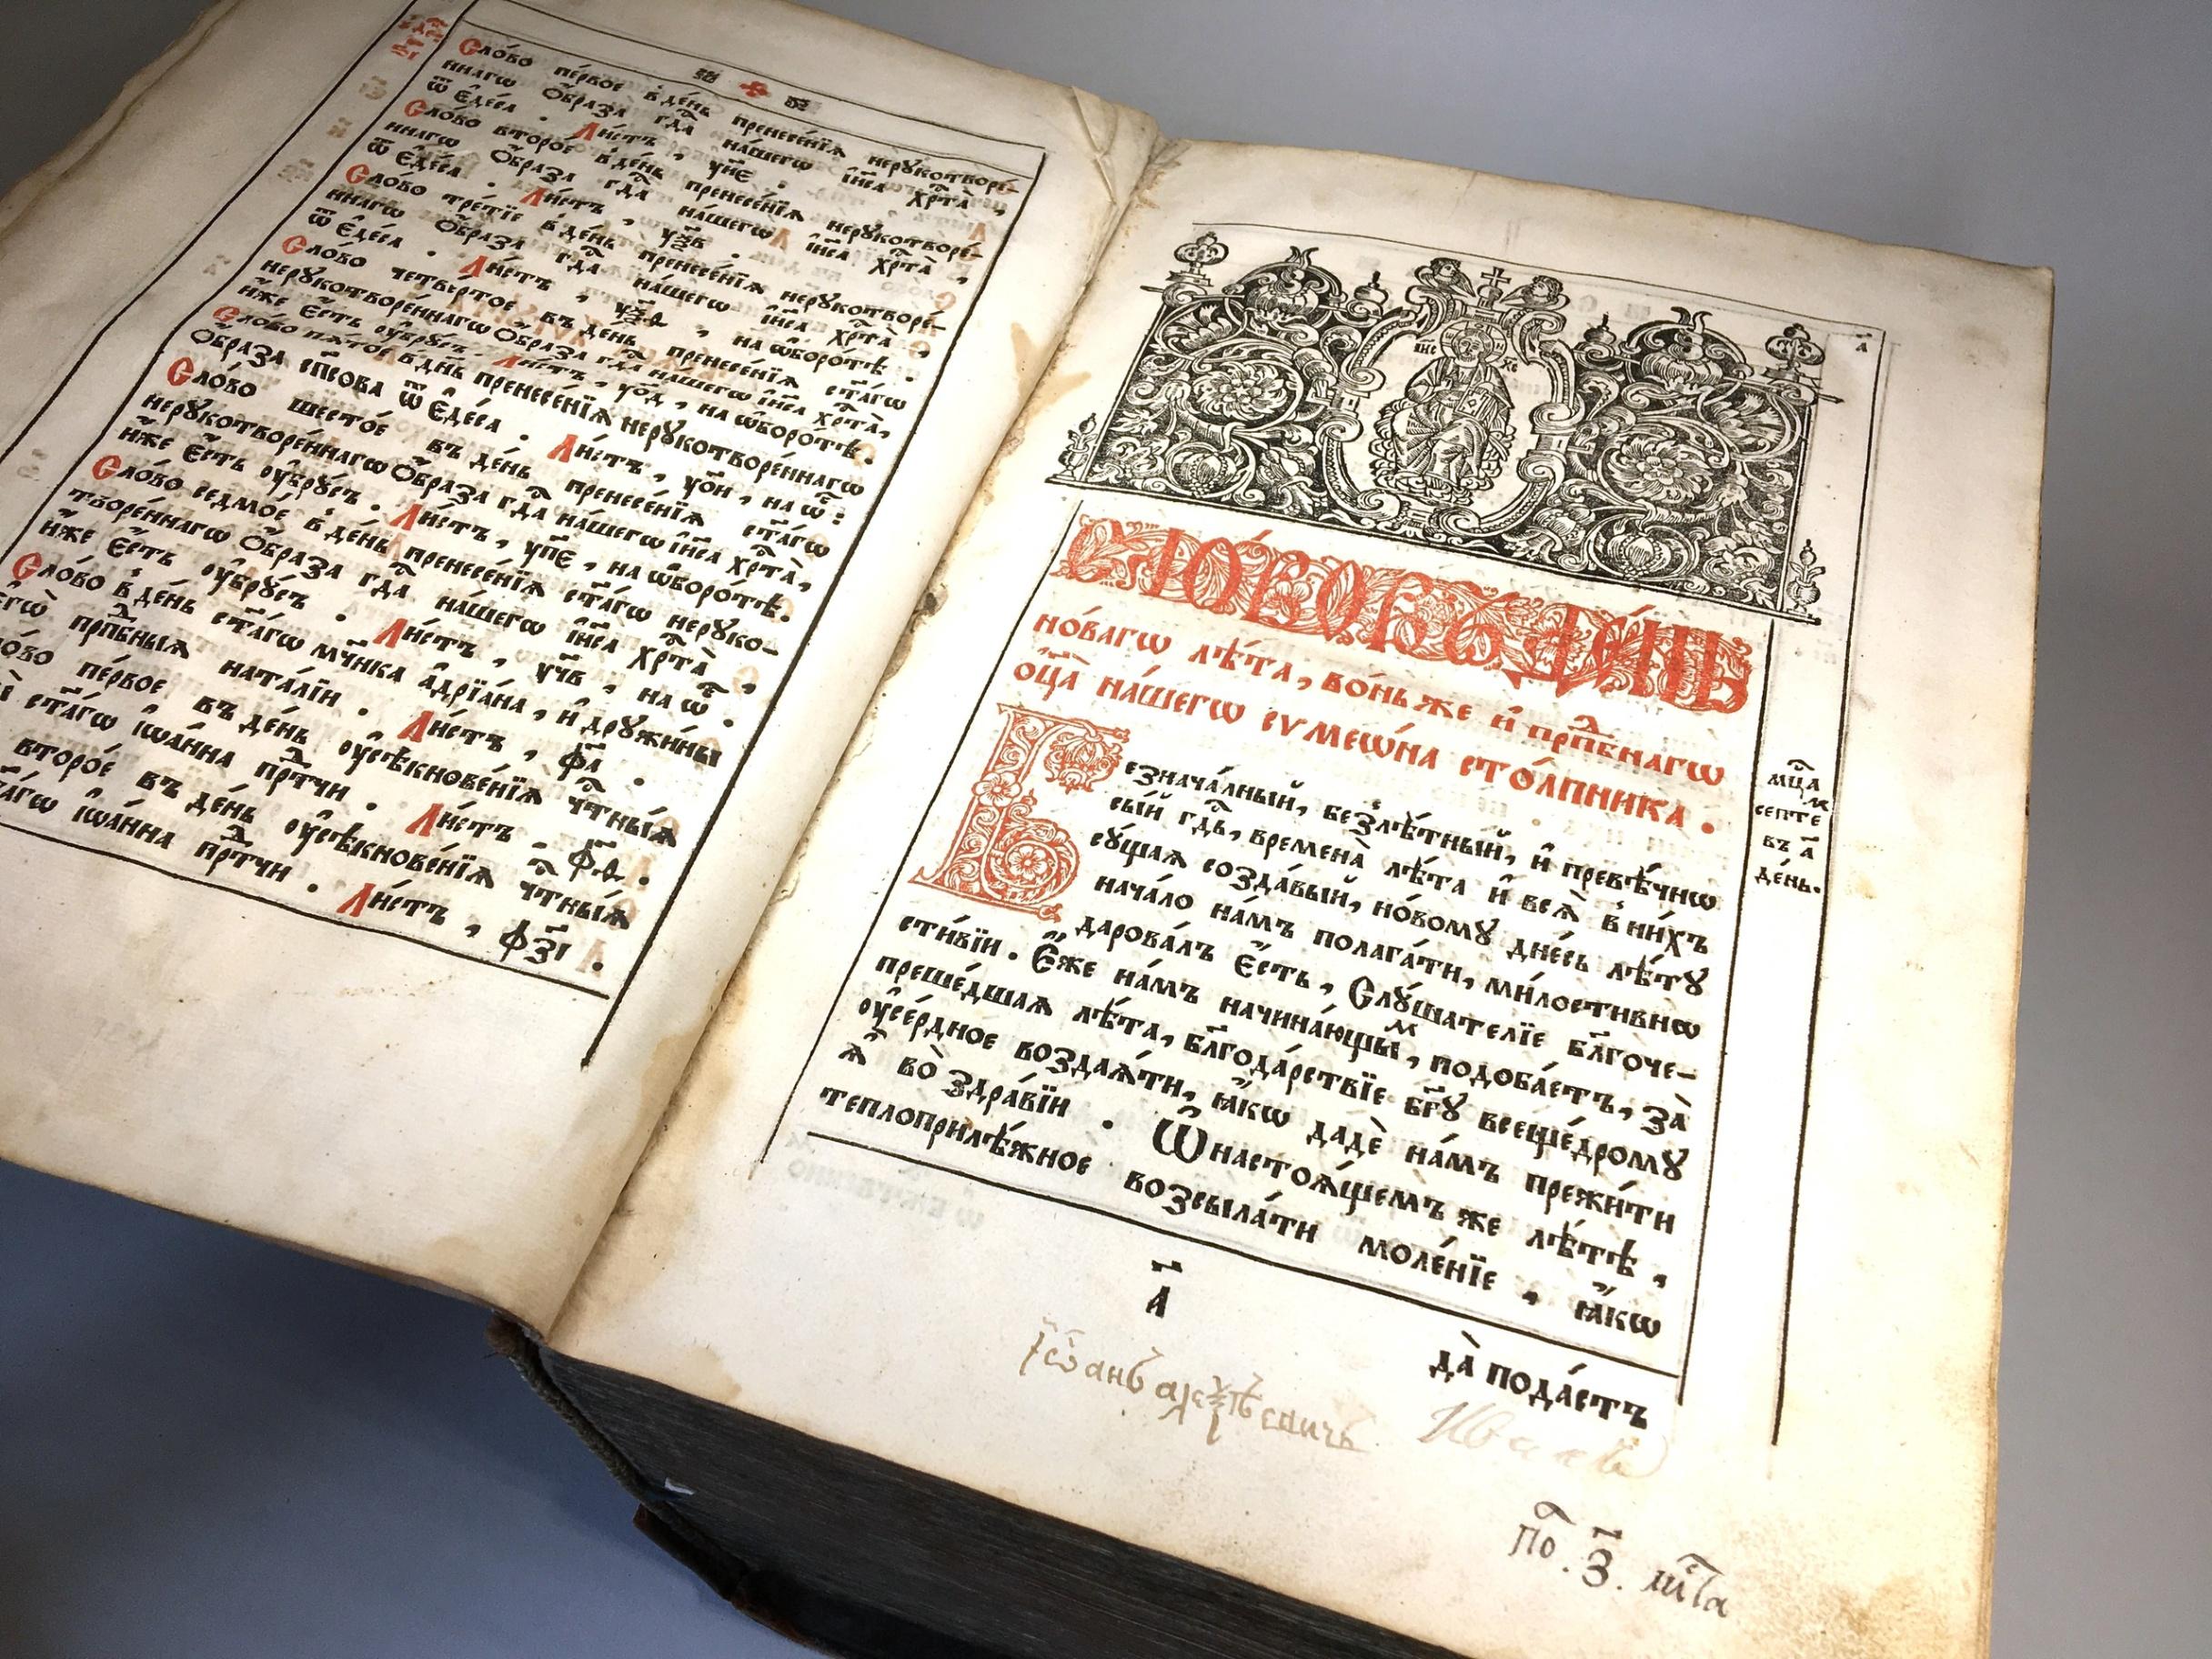 Сло́во пе́рвое в̾ де́нь пренесе́нїѧ нерꙋкотворе́-
ннагѡ Ѻ҆́браза гдⷭ҇а на́шегѡ і҆и҃са хрⷭ҇та̀,
ѿ Є҆де́са. Ли́стъ, ун҃є.
Сло́во второ́е в̾ де́нь пренесе́нїѧ нерꙋкотворе́-
ннагѡ Ѻ҆́браза гдⷭ҇а на́шегѡ і҆и҃са хрⷭ҇та̀,
ѿ Є҆де́са. Ли́стъ, уѯ҃в.
Сло́во тре́тїе в̾ де́нь пренесе́нїѧ нерꙋкотворе́-
ннагѡ Ѻ҆́браза гдⷭ҇а на́шегѡ і҆и҃са хрⷭ҇та̀,
ѿ Є҆де́са. Ли́стъ, уѯ҃ѳ, на ѡ҆боро́тѣ.
Сло́во четве́ртое въ де́нь пренесе́нїѧ ст҃а́гѡ
нерꙋкотворе́ннагѡ Ѻ҆́браза гдⷭ҇а на́шегѡ і҆и҃са хрⷭ҇та̀,
и҆́же є҆́сть ᲂу҆брꙋ́съ. Ли́стъ, уо҃д, на ѡ҆боро́тѣ.
Сло́во пѧ́тое в̾ дн҃ь пренесе́нїѧ нерꙋкотворе́ннагѡ
Ѻ҆́браза сп҃сова ѿ Є҆де́са. Ли́стъ, уо҃и, на ѿ:
Сло́во шесто́е въ де́нь пренесе́нїѧ ст҃а́гѡ
нерꙋкотворе́ннагѡ Ѻ҆́браза гдⷭ҇а на́шегѡ і҆и҃са хрⷭ҇та̀,
и҆́же Є҆́сть ᲂу҆брꙋ́съ. Ли́стъ, уп҃є, на ѡ҆боро́тѣ.
Сло́во седмо́е в̾ де́нь пренесе́нїѧ ст҃а́гѡ нерꙋко-
творе́ннагѡ Ѻ҆́браза гдⷭ҇а на́шегѡ і҆и҃са хрⷭ҇та̀,
и҆́же Є҆́сть ᲂу҆брꙋ́съ. Ли́стъ, уч҃в, на ѿ.
Сло́во в̾ де́нь ст҃а́гѡ мч҃нка а҆дрїа́на, и҆ дрꙋжи́ны
є҆гѡ̀ прпⷣбныѧ ната́лїи. Ли́стъ, ф҃а.
пе́рвое въ де́нь ᲂу҆сѣкнове́нїѧ чⷭ҇тны́ѧ
ст҃а́гѡ і҆ѡа́нна прⷣтчи. Ли́стъ, ф҃ѳ.
второ́е въ де́нь ᲂу҆сѣкнове́нїѧ чⷭ҇тны́ѧ
і҆ѡа́нна прⷣтчи. Ли́стъ, ф҃зі.
І҆и҃с Хс҃
а҃
Сло́во въ де́нь
но́вагѡ лѣ́та, во́ньже и҆ прпⷣбнагѡ
ѻ҆ц҃а̀ на́шегѡ сѵмеѡ́на сто́лпника.
Безнача́лный, безлѣ́тный, и҆ превѣ́чнѡ
сы́й гдⷭ҇ь, времена̀ лѣ́та и҆ всѧ̀ в̾ ни́хъ
сꙋ́щаѧ созда́вый, но́вомꙋ дне́сь лѣ́тꙋ
нача́ло на́мъ полага́ти, ми́лостивнѡ
дарова́лъ Є҆́сть, Слꙋ́шателїе бл҃гоче-
сти́вїи. Є҆́же на́мъ начина́ющыⷨ, подоба́етъ, за̀
преше́дшаѧ лѣ́та, бл҃года́рствїе бг҃ꙋ всеще́дромꙋ
ᲂу҆се́рдное воздаѧ́ти, ꙗ҆́кѡ дадѐ на́мъ прежи́ти
ѧ҆̀ во̀ здра́вїи. Ѿ настоѧ́щемъ же лѣ́тѣ,
теплоприлѣ́жное возсыла́ти моле́нїе, ꙗ҆́кѡ
мцⷭ҇а
септеⷨ
въ а҃
де́нь.
а҃
да̀ пода́стъ
По. з҃.